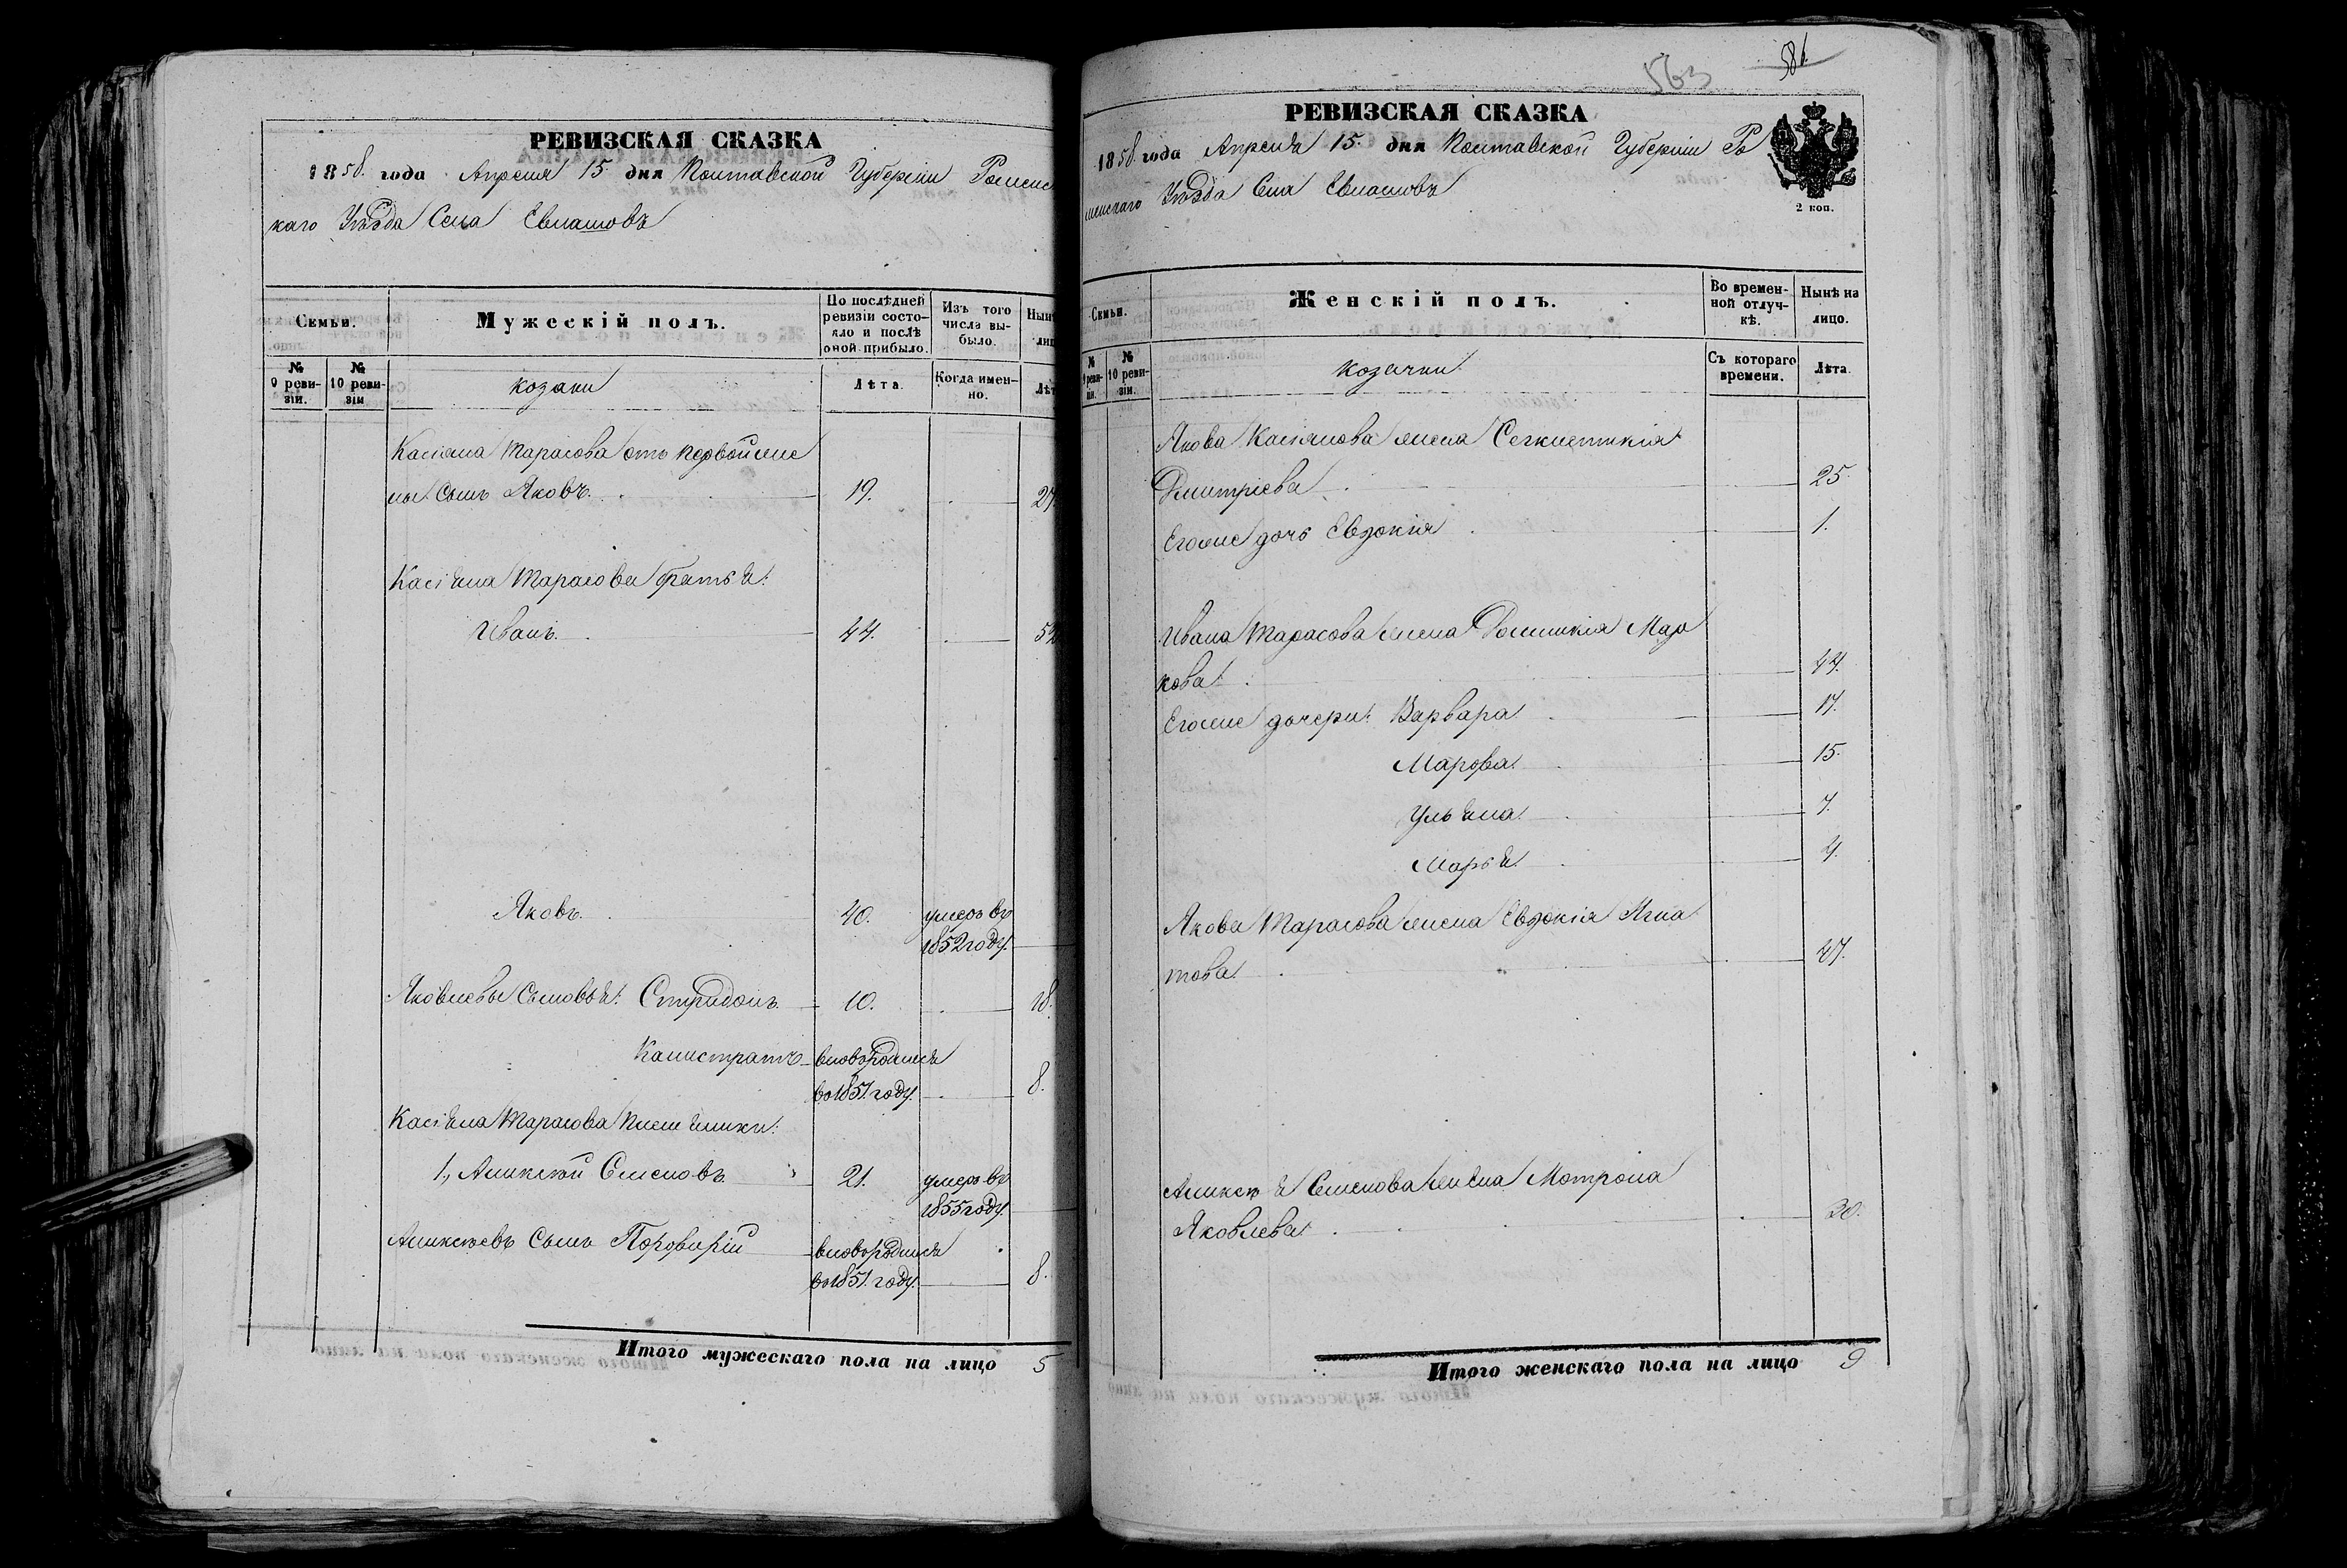 РЕВИЗСКАЯ СКАЗКА
1858. года Апреля 15 дня Полтавской Губерніи Роменс
каго Уѣзда Села Евлашовъ
Семьи.
Мужескій полъ.
По послѣдней ревизіи состояло и послѣ оной прибыло.
Изъ того числа выбыло.
Нын
лиц
№ 9 ревизіи.
№ 10 ревизіи
козаки
Лѣта.
Когда именно.
Лѣт
Касіяна Тарасова отъ первой же
ны Сынъ Яковъ. 19. 27.
Касіяна Тарасова братья:
Иванъ. 44. 52
Яковъ. 40. умеръ въ
1852 году.
Яковлевы Сыновья: Спиридонъ 10. 18.
Калистратъ вновь родился
во 1851. году. 8.
Касіяна Тарасова племянники:
1., Аликсѣй Семеновъ 21. умеръ въ
1855 году.
Аликсѣевъ Сынъ Порфирій вновь родился
во 1851. году. 8.
Итого мужескаго пола на лицо 5
563 586.
РЕВИЗСКАЯ СКАЗКА
1858. года Апреля 15. дня Полтавской Губерніи Ро
менскаго Уѣзда Села Евлашовъ
2 коп.
Семьи.
Женскій полъ.
Во временной отлучкѣ.
Нынѣ на лицо.
№ 9 ревизіи.
№ 10 ревизіи.
козачки
Съ котораго времени.
Лѣта.
Якова Касіянова жена
Дмитріева 25.
Егоже дочь Евдокія 1.
Ивана Тарасова жена Домникія Мар
кова 44.
Егоже дочери: Варвара 17.
Марфа 15.
Ульяна 7.
Марья 4.
Якова Тарасова жена Евдокія Игна
това 47.
Аликсѣя Семенова жена Мотрона
Яковлева 30.
Итого женскаго пола на лицо 9